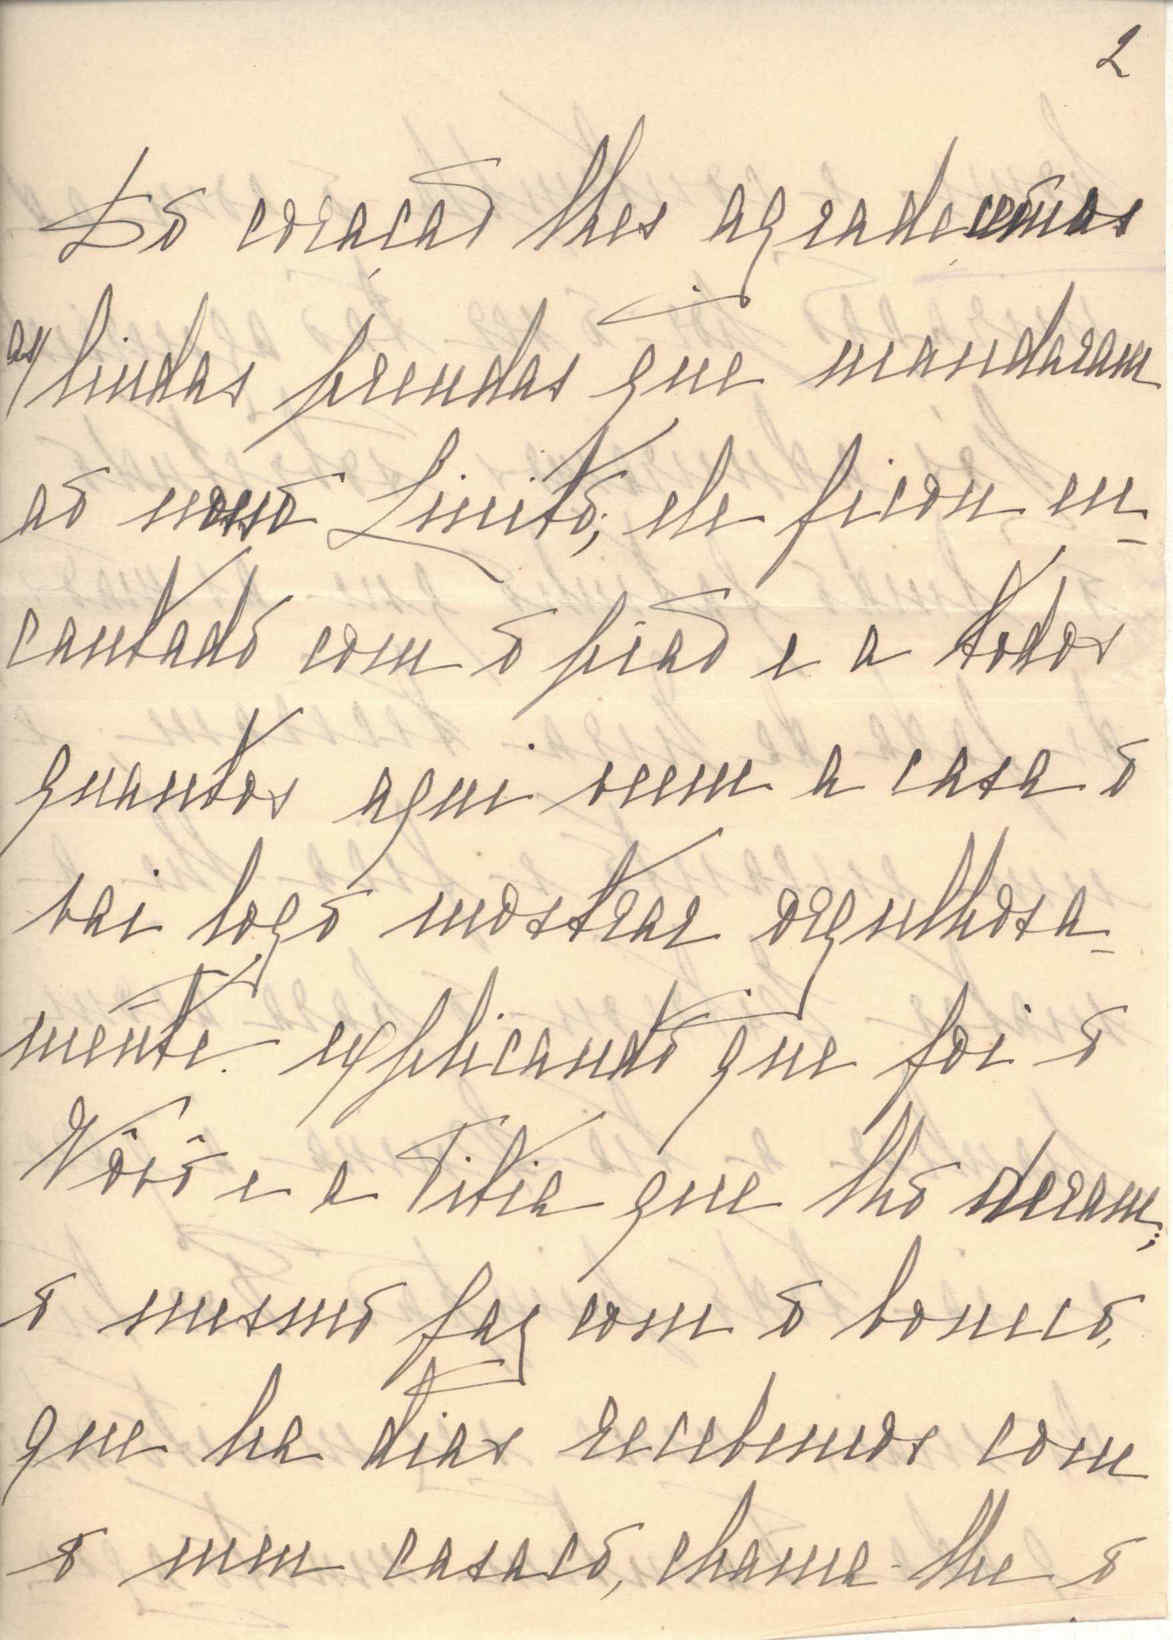 2
Do coração lhes agradecemos
as lindas prendas que mandaram
ao nosso Luisito; ele ficou en-
cantado com o pião e a todos
quantos aqui veem a casa o
vai logo mostrar orgulhosa-
mente explicando que foi o
Vôvô e a Titia que lho deram;
o mesmo faz com o boneco,
que ha dias recebemos com
o meu casaco, chama-lhe o